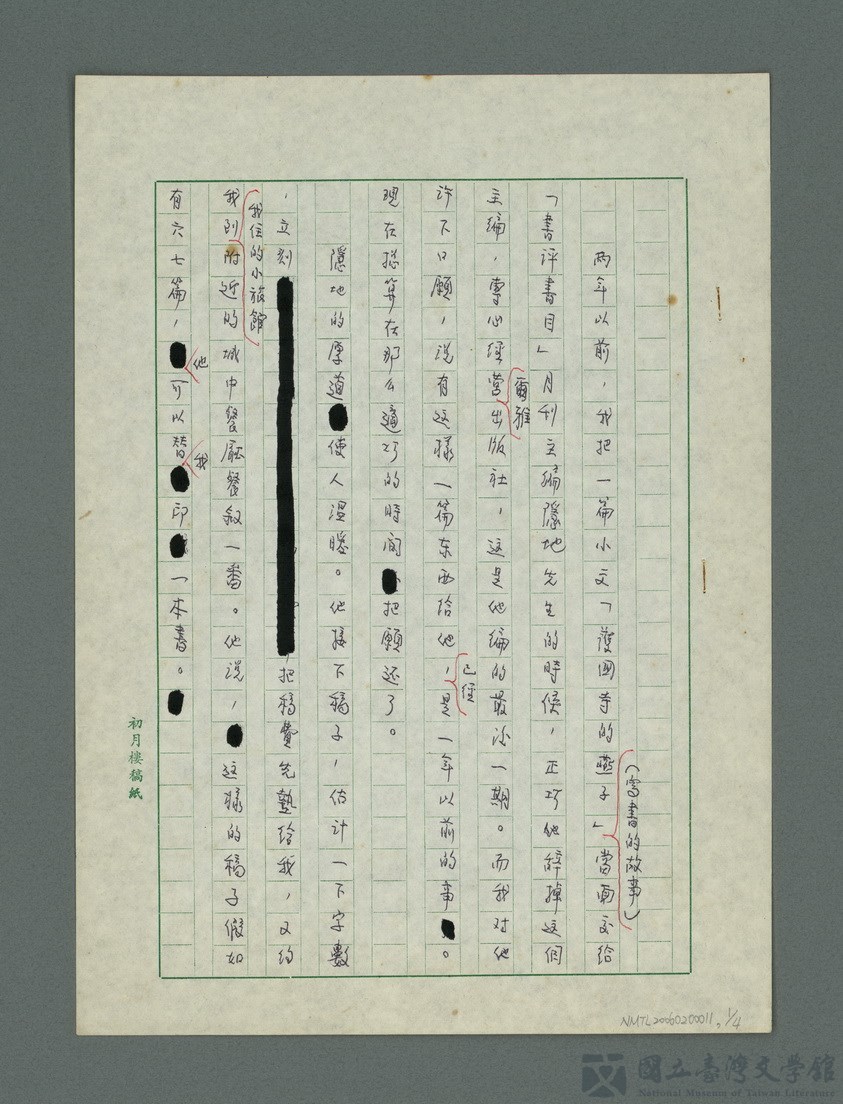 兩年以前，我把一篇小文「護國寺的燕子」當面交給
（寫書的故事）
「書評書目」月刊主編隱地先生的時候，正巧他辭掉這個
主編，專心經營出版社，這是他編的最涂一期。而我对他
爾雅
許下口願，說有这樣一篇东西给他，是一年以前的事。
已經
現在總算在那么適巧的時间把願还了。
隱地的厚道使人溫暖。他接下稿子，估计一下字數
，立刻，把稿費先墊给我，又约
我到附近的城中餐廳餐敘一番。他说，這樣的稿子假如
我住的小旅館
有六七篇，可以替印一本書。
他
我
初月樓稿紙
NMTL20060200011, 1/4
國立臺灣文學館
National Museum of Taiwan Literature